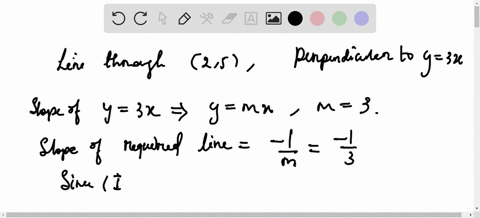 Line through (2,5), Perpendicular to y=3x
Slope of y = 3x ⇒ y = mx , m = 3.
Slope of required line = -1/m = -1/3
Since (I